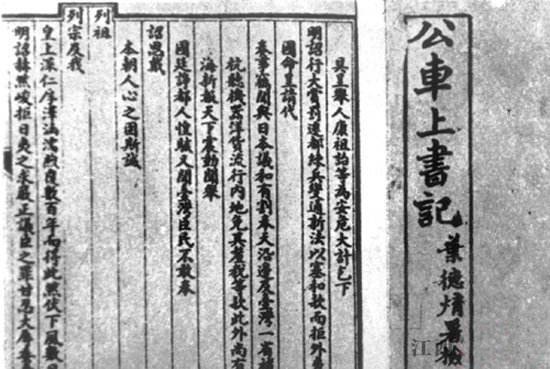 公車上書記
葉
署檢
江
具呈舉人康祖詒等為安危大計乞下
明詔行大賞罰遷都練兵變通新法以塞和款而拒外
國命呈請代
奏事竊聞與日本議和有割奉天沿邊及臺灣一省補
杭聽機器洋貨流行內地免其釐稅等款此外尚有
海新報天下震動聞舉
國廷諍都人惶駭又聞臺灣臣民不敢奉
詔思戴
本朝人心之固斯誠
列祖
列宗及我
皇上深仁厚澤涵濡煦覆數百年而得此然伏下風數日
明詔赫然峻拒日夷之求嚴正議臣之罪甘忍大辱委